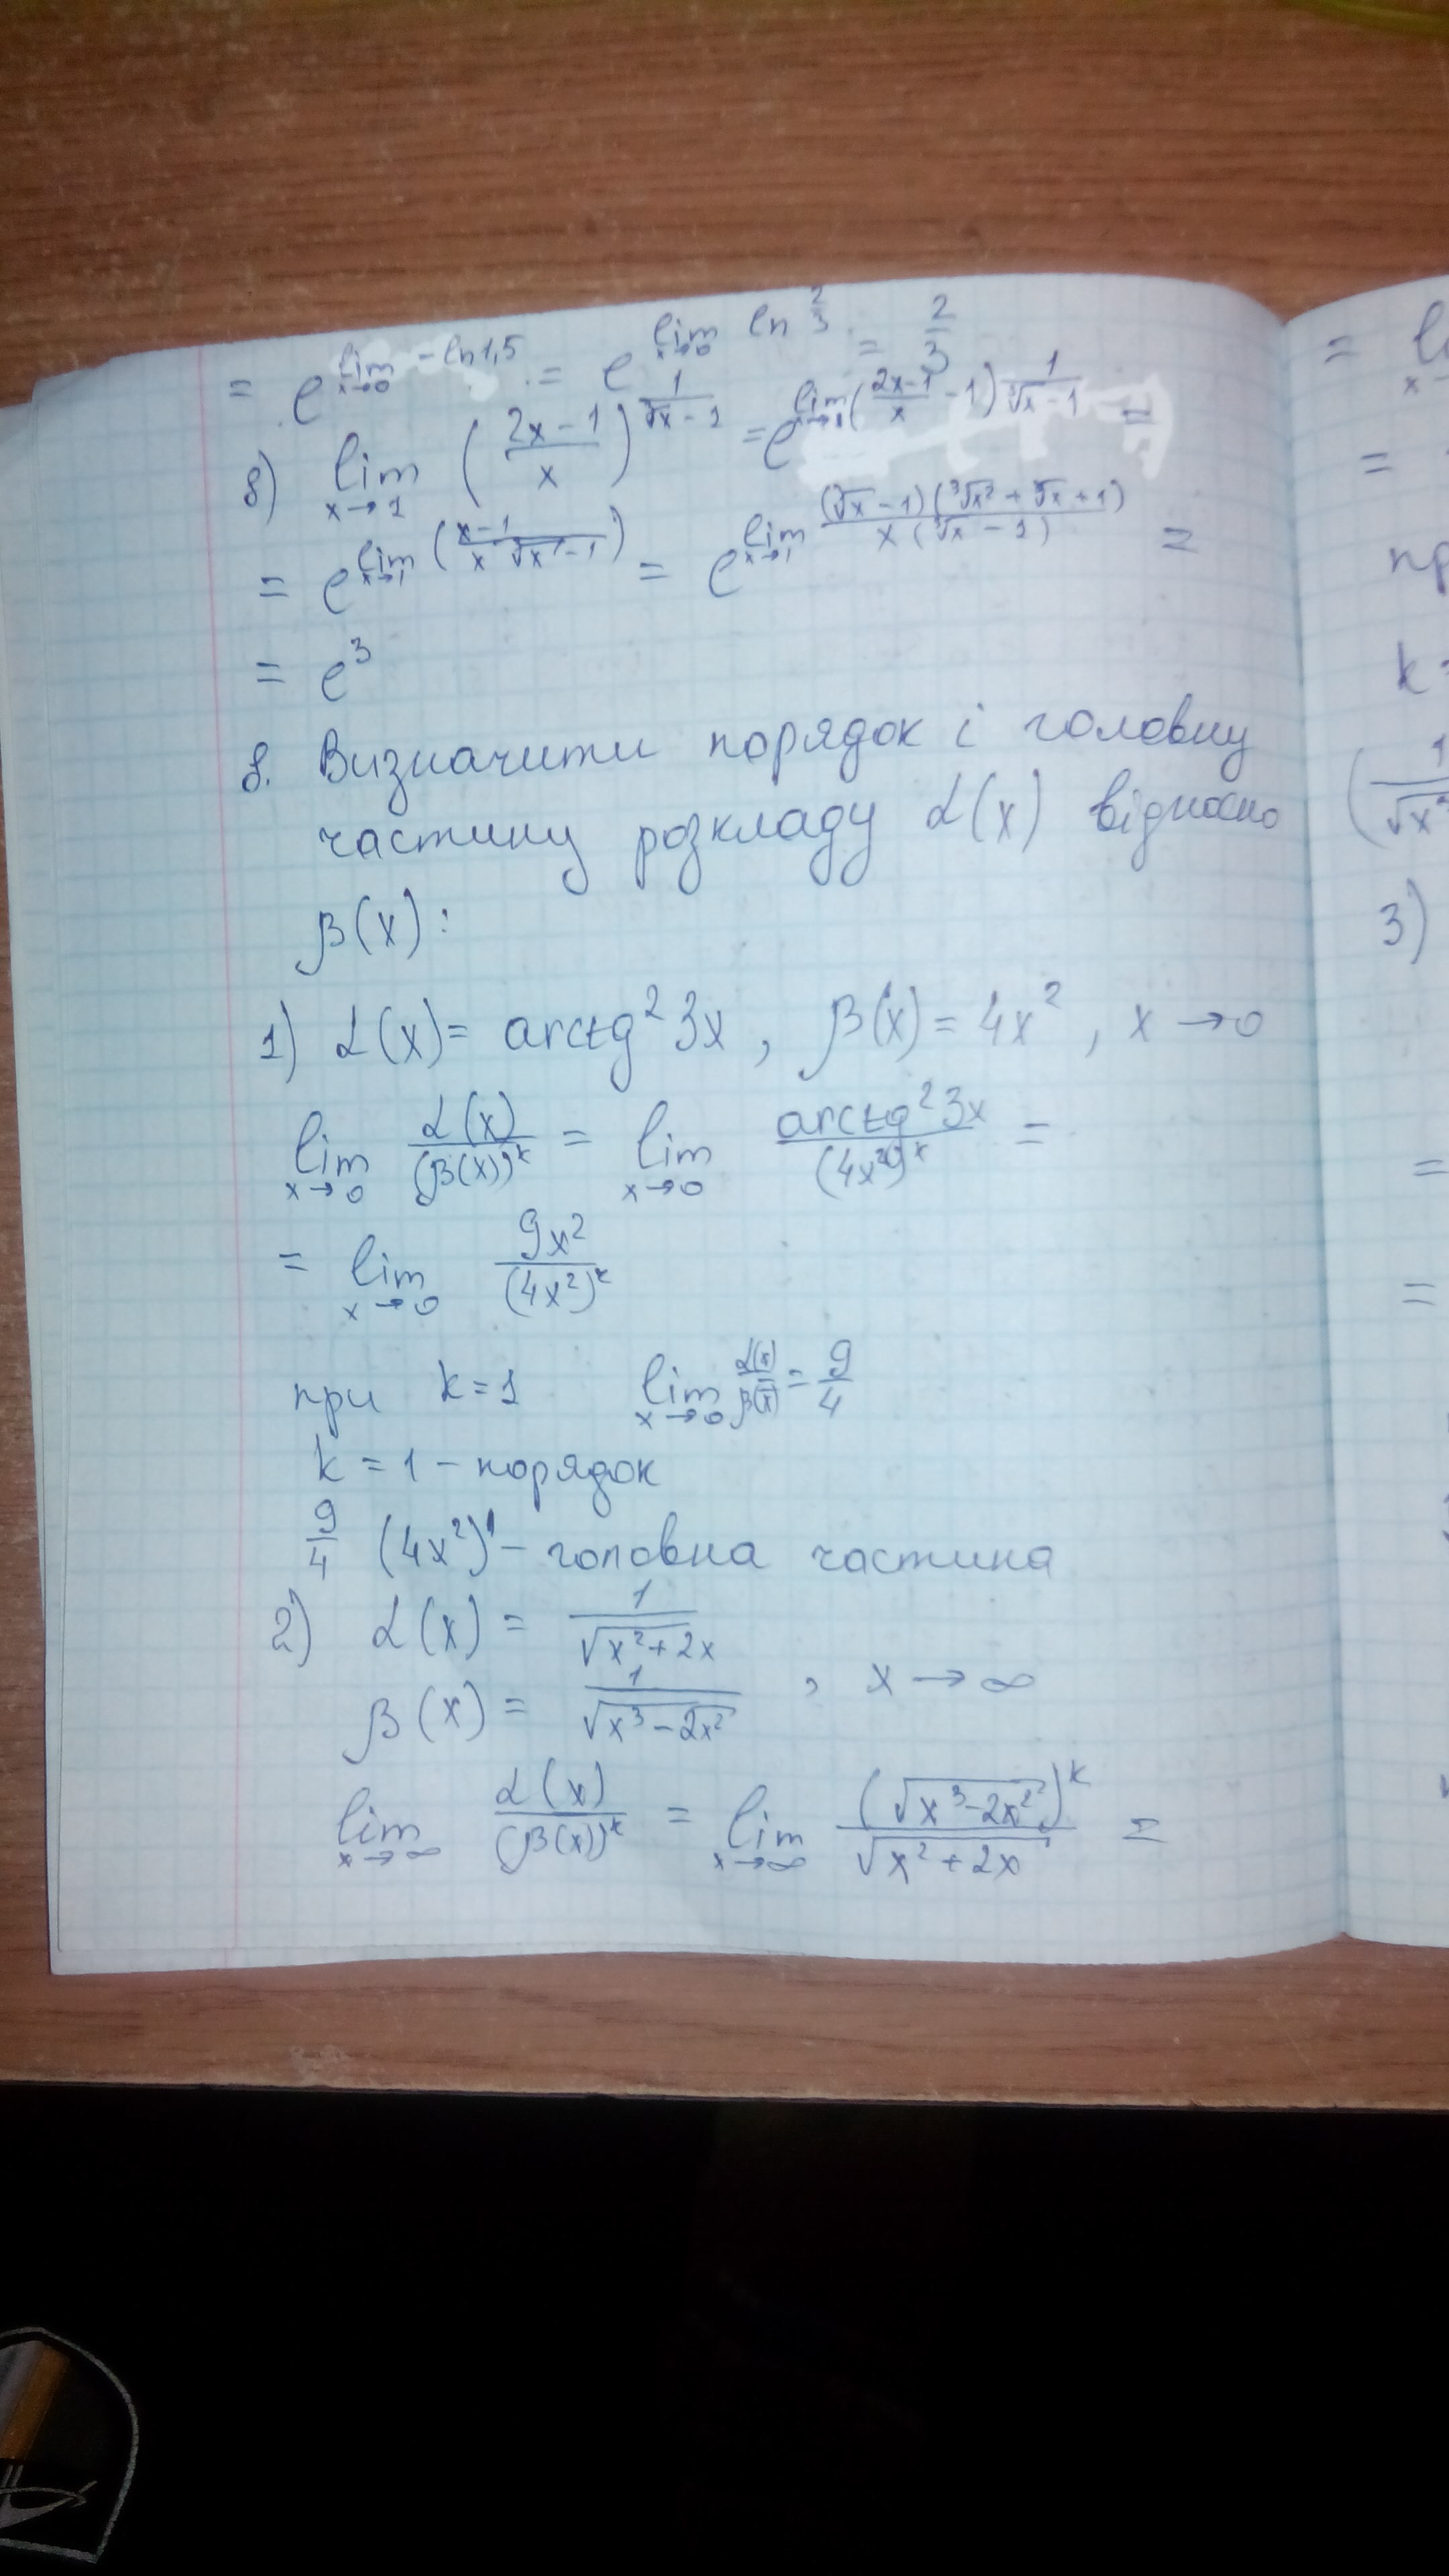 = e^{lim_{x→0} -ln1,5} = e^{lim_{x→0} ln 2/3} = 2/3
8) lim_{x→1} ((2x-1)/x)^{1/(∛x-1)} = e^{lim_{x→1} ((2x-1)/x - 1) 1/(∛x-1)} =
= e^{lim_{x→1} ((x-1)/(x ∛x-1))} = e^{lim_{x→1} (∛x-1)(∛x²+∛x+1)/(x(∛x-1))} =
= e³
8. Визначити порядок і головну
частину розкладу α(x) відносно
β(x):
1) α(x)= arctg² 3x, β(x)= 4x², x→0
lim_{x→0} α(x)/(β(x))^k = lim_{x→0} arctg² 3x/(4x²)^k =
= lim_{x→0} 9x²/(4x²)^k
при k=1 lim_{x→0} α(x)/β(x) = 9/4
k = 1 - порядок
9/4 (4x²)¹ - головна частина
2) α(x) = 1/√(x²+2x)
β(x) = 1/√(x³-2x²), x→∞
lim_{x→∞} α(x)/(β(x))^k = lim_{x→∞} (√(x³-2x²))^k/√(x²+2x) =
=
=
k
3)
=
=